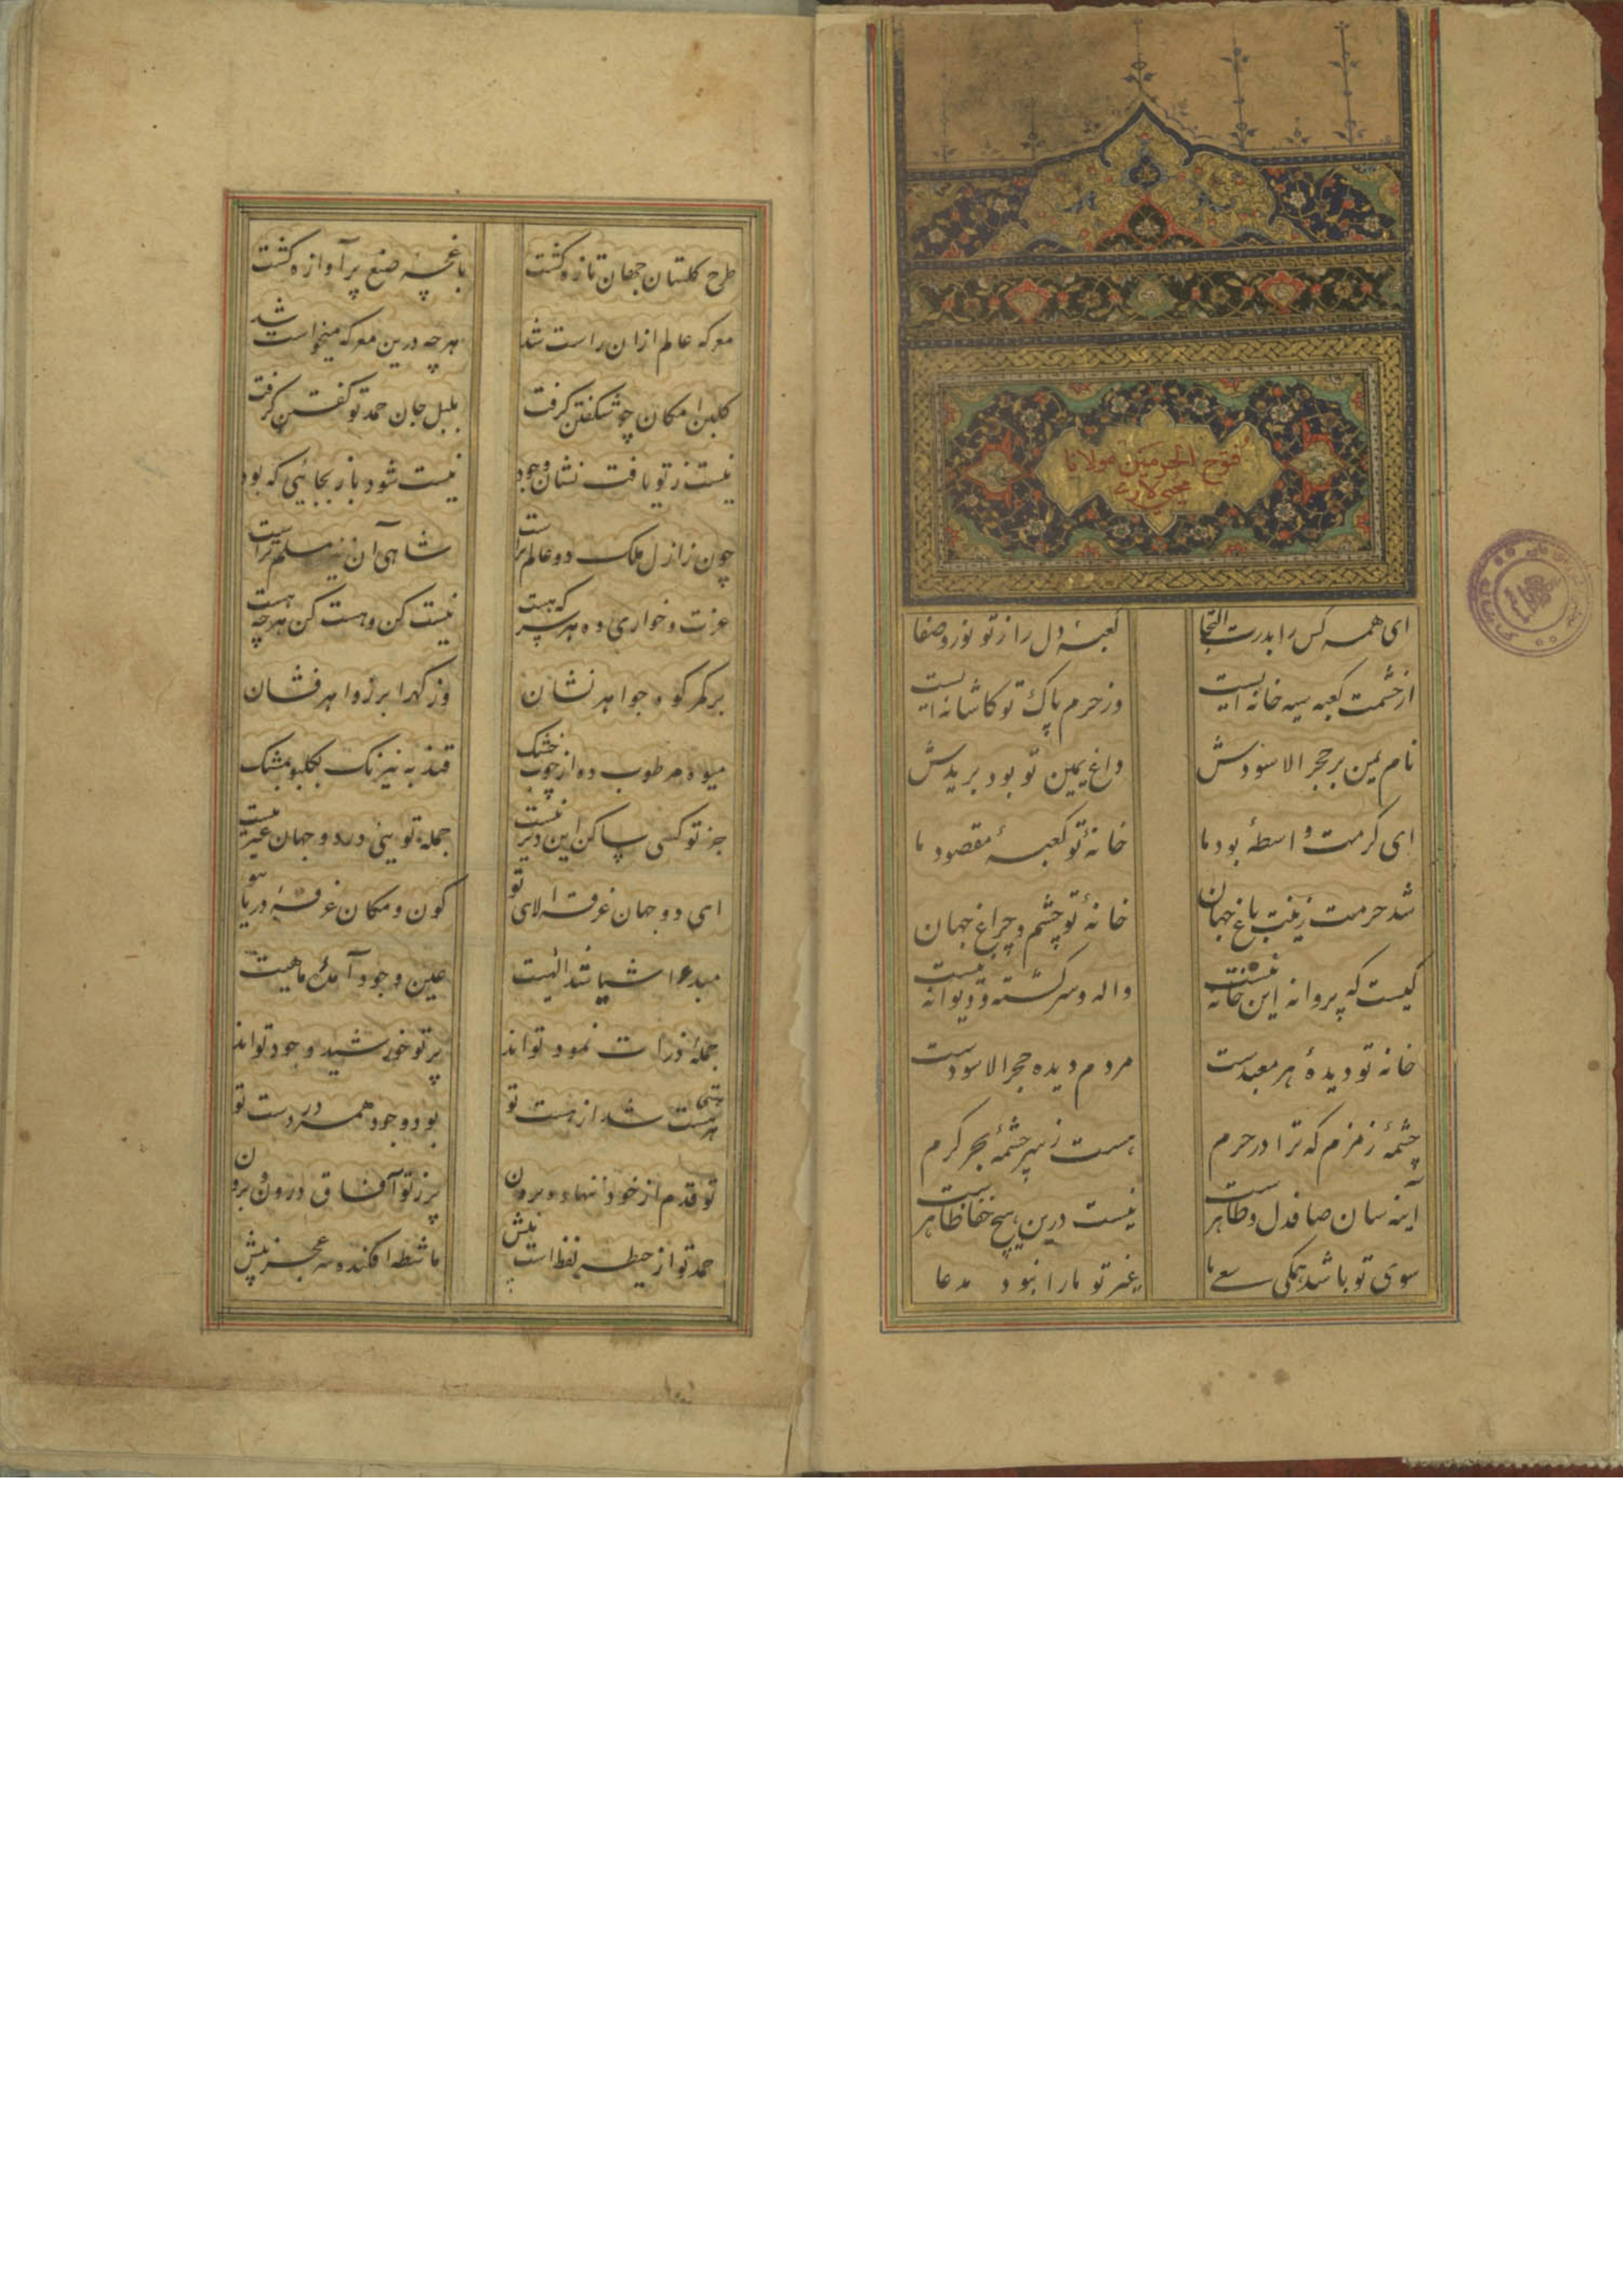 فتوح الحرمین مولانا
محیی لاری
ای همه کس را بدرت التجا کعبهٔ دل را ز تو نور و صفا
از حشمت کعبه سیه خانه ایست وز حرم پاک تو کاشانه ایست
نام یمین بر حجر الاسودش داغ یمین تو بود بر یدش
ای کرمت واسطهٔ بود ما خانهٔ تو کعبهٔ مقصود ما
شد حرمت زینت باغ جهان خانهٔ تو چشم و چراغ جهان
کیست که پروانه این خانه نیست واله و سرگشته و دیوانه نیست
خانه تو دیدهٔ هر معبدست مردم دیده حجر الاسودست
چشمهٔ زمزم که ترا در حرم هست ز سرچشمهٔ بحر کرم
آینه سان صافدل و ظاهرست نیست درین هیچ خفا ظاهرست
سوی تو باشد همگی سعی ما غیر تو ما را نبود مدعا
طرح گلستان جهان تازه گشت باغچهٔ صنع پر آوازه گشت
معرکه عالم ازان راست شد هرچه درین معرکه میخواست شد
گلبن امکان چو شکفتن گرفت بلبل جان حمد تو گفتن گرفت
نیست ز تو یافت نشان وجود نیست شود باز بجائی که بود
چون ز ازل ملک دو عالم تراست شاهی آن نیز مسلم تراست
عزت و خواری ده هر سر که هست نیست کن و هست کن هرچه هست
بر کمر کوه جواهر نشان وز گهر ابر زواهر فشان
میوهٔ مرطوب ده از چوب خشک
جز تو کسی ساکن این دیر نیست جمله توئی در دو جهان غیر نیست
ای دو جهان غرقهٔ الای تو کون و مکان غرقهٔ دریای تو
مبدء اشیا شد الهیت عین وجود آمدهٔ ماهیت
جملهٔ ذرات نمود تواند پرتو خورشید وجود تواند
هستی هست شد از هست تو بود وجود همه در دست تو
تو قدم از خود ننهاده برون پر ز تو آفاق درون و برون
حمد تو از حیطهٔ لفظ است بیش ماشطه افکنده سر عجز پیش